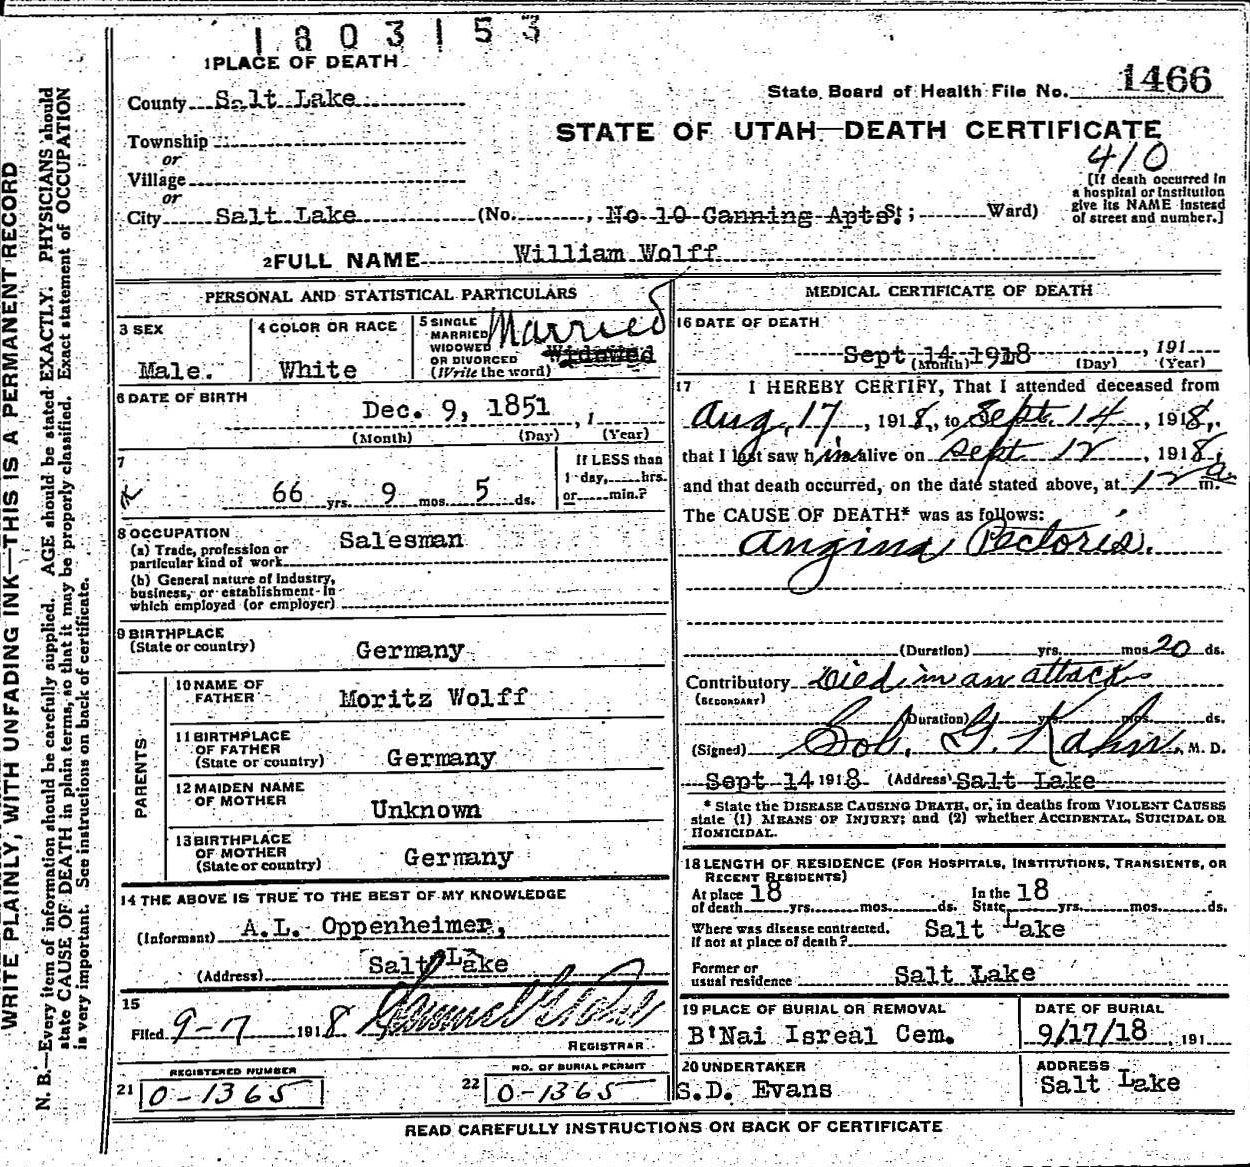 1803153
1 PLACE OF DEATH
County Salt Lake
State Board of Health File No. 1466
STATE OF UTAH—DEATH CERTIFICATE
410
Township
or
Village
or
City Salt Lake (No. , No 10 Canning Apts. St; Ward)
[If death occurred in
a hospital or institution
give its NAME instead
of street and number.]
2 FULL NAME William Wolff
PERSONAL AND STATISTICAL PARTICULARS
3 SEX
Male.
4 COLOR OR RACE
White
5 SINGLE
MARRIED
WIDOWED
OR DIVORCED
(Write the word)
Married
Widowed
6 DATE OF BIRTH
Dec. 9, 1851 , 1
(Month) (Day) (Year)
7
66 yrs. 9 mos. 5 ds.
If LESS than
1 day, hrs.
or min.?
8 OCCUPATION
(a) Trade, profession or
particular kind of work Salesman
(b) General nature of Industry,
business, or establishment in
which employed (or employer)
9 BIRTHPLACE
(State or country) Germany
PARENTS
10 NAME OF
FATHER Moritz Wolff
11 BIRTHPLACE
OF FATHER
(State or country) Germany
12 MAIDEN NAME
OF MOTHER Unknown
13 BIRTHPLACE
OF MOTHER
(State or country) Germany
14 THE ABOVE IS TRUE TO THE BEST OF MY KNOWLEDGE
(Informant) A.L. Oppenheimer,
(Address) Salt Lake
15
Filed 9-7 1918
REGISTRAR
REGISTERED NUMBER
21 0-1365
NO. OF BURIAL PERMIT
22 0-1365
MEDICAL CERTIFICATE OF DEATH
16 DATE OF DEATH
Sept 14 1918 , 191
(Month) (Day) (Year)
17 I HEREBY CERTIFY, That I attended deceased from
Aug. 17, 1918, to Sept. 14, 1918,
that I last saw him alive on Sept 12, 1918,
and that death occurred, on the date stated above, at 12 a m.
The CAUSE OF DEATH* was as follows:
Angina Pectoris.
(Duration) yrs. mos 20 ds.
Contributory Died in an attack
(SECONDARY)
(Duration) yrs. mos. ds.
(Signed) Sol. G. Kahn, M. D.
Sept 14 1918 (Address) Salt Lake
* State the DISEASE CAUSING DEATH, or, in deaths from VIOLENT CAUSES
state (1) MEANS OF INJURY; and (2) whether ACCIDENTAL, SUICIDAL OR
HOMICIDAL.
18 LENGTH OF RESIDENCE (FOR HOSPITALS, INSTITUTIONS, TRANSIENTS, OR
RECENT RESIDENTS)
At place 18 In the 18
of death yrs. mos. ds. State yrs. mos. ds.
Where was disease contracted.
if not at place of death? Salt Lake
Former or
usual residence Salt Lake
19 PLACE OF BURIAL OR REMOVAL
B'Nai Isreal Cem.
DATE OF BURIAL
9/17/18 , 191
20 UNDERTAKER
S.D. Evans
ADDRESS
Salt Lake
READ CAREFULLY INSTRUCTIONS ON BACK OF CERTIFICATE
WRITE PLAINLY, WITH UNFADING INK—THIS IS A PERMANENT RECORD
N. B.—Every item of information should be carefully supplied. AGE should be stated EXACTLY. PHYSICIANS should
state CAUSE OF DEATH in plain terms, so that it may be properly classified. Exact statement of OCCUPATION
is very important. See instructions on back of certificate.